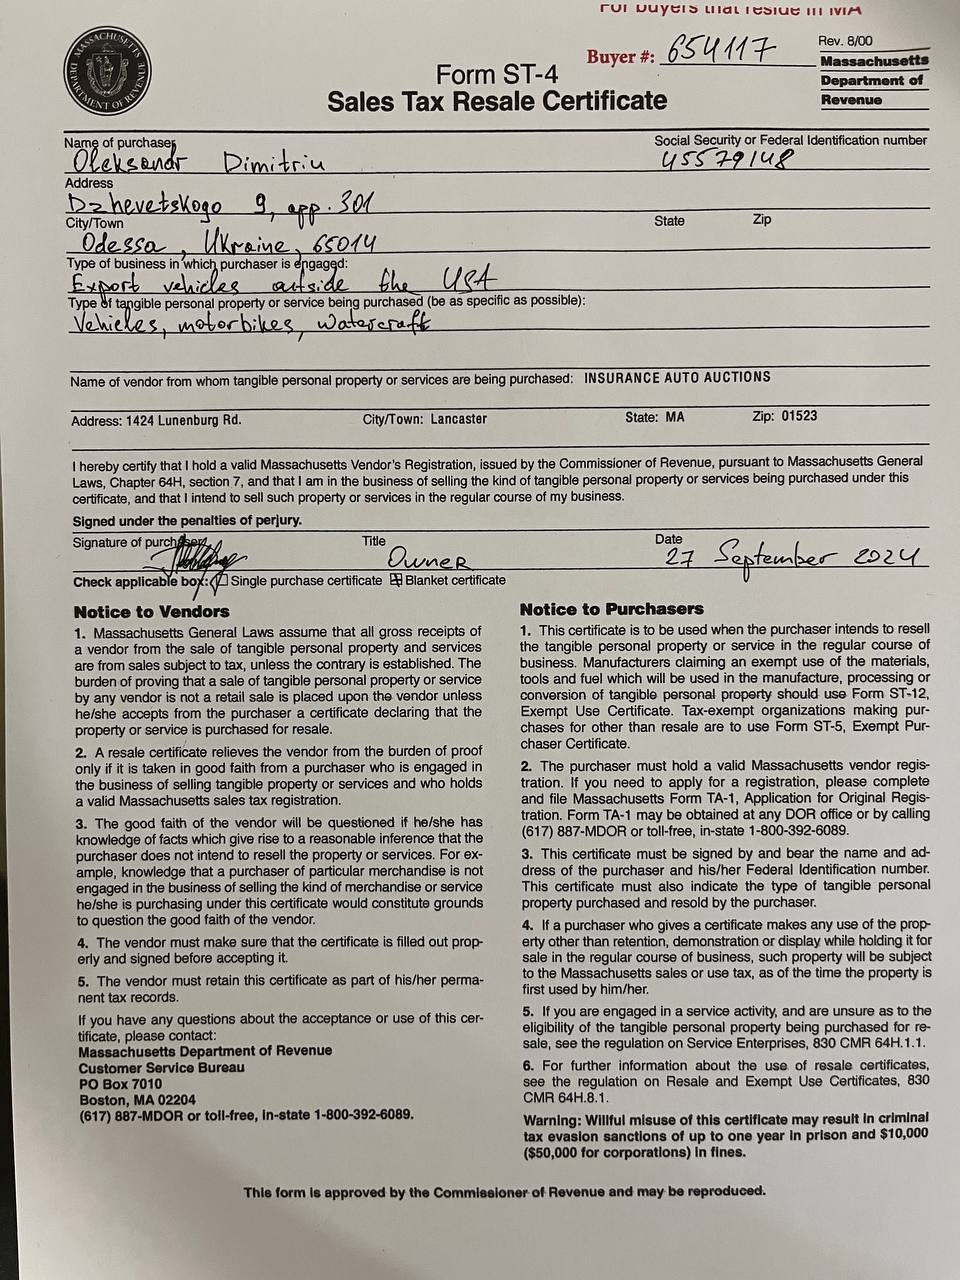 For buyers that reside in MA
MASSACHUSETTS DEPARTMENT OF REVENUE
Buyer #: 654117
Rev. 8/00
Massachusetts
Department of
Revenue
Form ST-4
Sales Tax Resale Certificate
Name of purchaser
Social Security or Federal Identification number
Oleksandr Dimitriu
45579148
Address
Dzhevetskogo 9, app. 301
City/Town
State
Zip
Odessa, Ukraine, 65014
Type of business in which purchaser is engaged:
Export vehicles outside the USA
Type of tangible personal property or service being purchased (be as specific as possible):
Vehicles, motorbikes, watercraft
Name of vendor from whom tangible personal property or services are being purchased: INSURANCE AUTO AUCTIONS
Address: 1424 Lunenburg Rd.
City/Town: Lancaster
State: MA
Zip: 01523
I hereby certify that I hold a valid Massachusetts Vendor's Registration, issued by the Commissioner of Revenue, pursuant to Massachusetts General
Laws, Chapter 64H, section 7, and that I am in the business of selling the kind of tangible personal property or services being purchased under this
certificate, and that I intend to sell such property or services in the regular course of my business.
Signed under the penalties of perjury.
Signature of purchaser
Title
Date
Owner
27 September 2024
Check applicable box: Single purchase certificate Blanket certificate
Notice to Vendors
1. Massachusetts General Laws assume that all gross receipts of
a vendor from the sale of tangible personal property and services
are from sales subject to tax, unless the contrary is established. The
burden of proving that a sale of tangible personal property or service
by any vendor is not a retail sale is placed upon the vendor unless
he/she accepts from the purchaser a certificate declaring that the
property or service is purchased for resale.
2. A resale certificate relieves the vendor from the burden of proof
only if it is taken in good faith from a purchaser who is engaged in
the business of selling tangible property or services and who holds
a valid Massachusetts sales tax registration.
3. The good faith of the vendor will be questioned if he/she has
knowledge of facts which give rise to a reasonable inference that the
purchaser does not intend to resell the property or services. For ex-
ample, knowledge that a purchaser of particular merchandise is not
engaged in the business of selling the kind of merchandise or service
he/she is purchasing under this certificate would constitute grounds
to question the good faith of the vendor.
4. The vendor must make sure that the certificate is filled out prop-
erly and signed before accepting it.
5. The vendor must retain this certificate as part of his/her perma-
nent tax records.
If you have any questions about the acceptance or use of this cer-
tificate, please contact:
Massachusetts Department of Revenue
Customer Service Bureau
PO Box 7010
Boston, MA 02204
(617) 887-MDOR or toll-free, in-state 1-800-392-6089.
Notice to Purchasers
1. This certificate is to be used when the purchaser intends to resell
the tangible personal property or service in the regular course of
business. Manufacturers claiming an exempt use of the materials,
tools and fuel which will be used in the manufacture, processing or
conversion of tangible personal property should use Form ST-12,
Exempt Use Certificate. Tax-exempt organizations making pur-
chases for other than resale are to use Form ST-5, Exempt Pur-
chaser Certificate.
2. The purchaser must hold a valid Massachusetts vendor regis-
tration. If you need to apply for a registration, please complete
and file Massachusetts Form TA-1, Application for Original Regis-
tration. Form TA-1 may be obtained at any DOR office or by calling
(617) 887-MDOR or toll-free, in-state 1-800-392-6089.
3. This certificate must be signed by and bear the name and ad-
dress of the purchaser and his/her Federal Identification number.
This certificate must also indicate the type of tangible personal
property purchased and resold by the purchaser.
4. If a purchaser who gives a certificate makes any use of the prop-
erty other than retention, demonstration or display while holding it for
sale in the regular course of business, such property will be subject
to the Massachusetts sales or use tax, as of the time the property is
first used by him/her.
5. If you are engaged in a service activity, and are unsure as to the
eligibility of the tangible personal property being purchased for re-
sale, see the regulation on Service Enterprises, 830 CMR 64H.1.1.
6. For further information about the use of resale certificates,
see the regulation on Resale and Exempt Use Certificates, 830
CMR 64H.8.1.
Warning: Willful misuse of this certificate may result in criminal
tax evasion sanctions of up to one year in prison and $10,000
($50,000 for corporations) in fines.
This form is approved by the Commissioner of Revenue and may be reproduced.